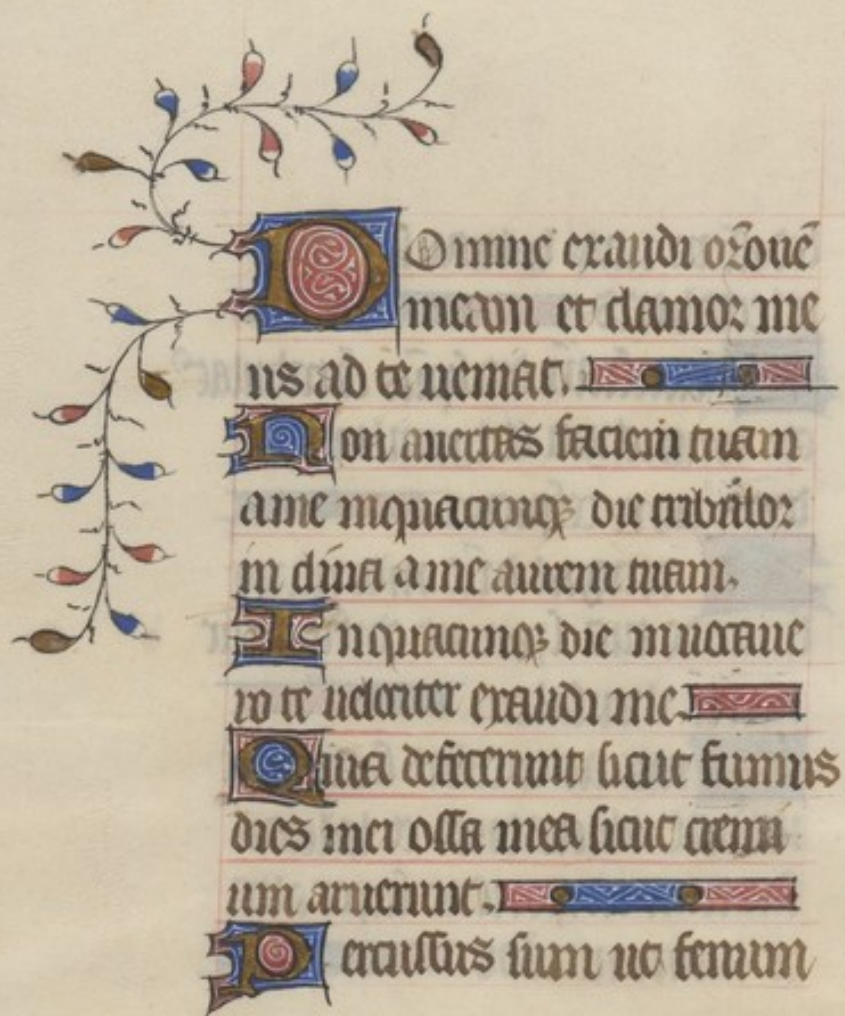 Domine exaudi or̃onē
meam et clamor me
us ad te ueniat.
Non auertas faciem tuam
a me inquacunqꝫ die tribũlor
in clina a me aurem tuam.
Inquacunqꝫ die in uocaue
ro te uelociter exaudi me.
Quia defecerunt sicut fumus
dies mei ossa mea sicut cremi
um aruerunt.
Percussus sum ut fenum